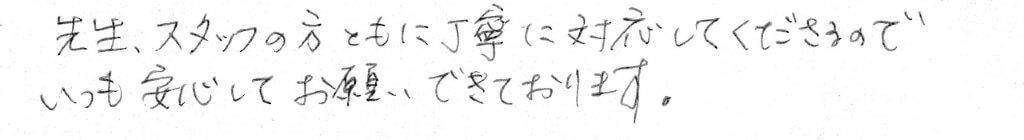 先生、スタッフの方ともに丁寧に対応してくださるので
いつも安心してお願いできております。